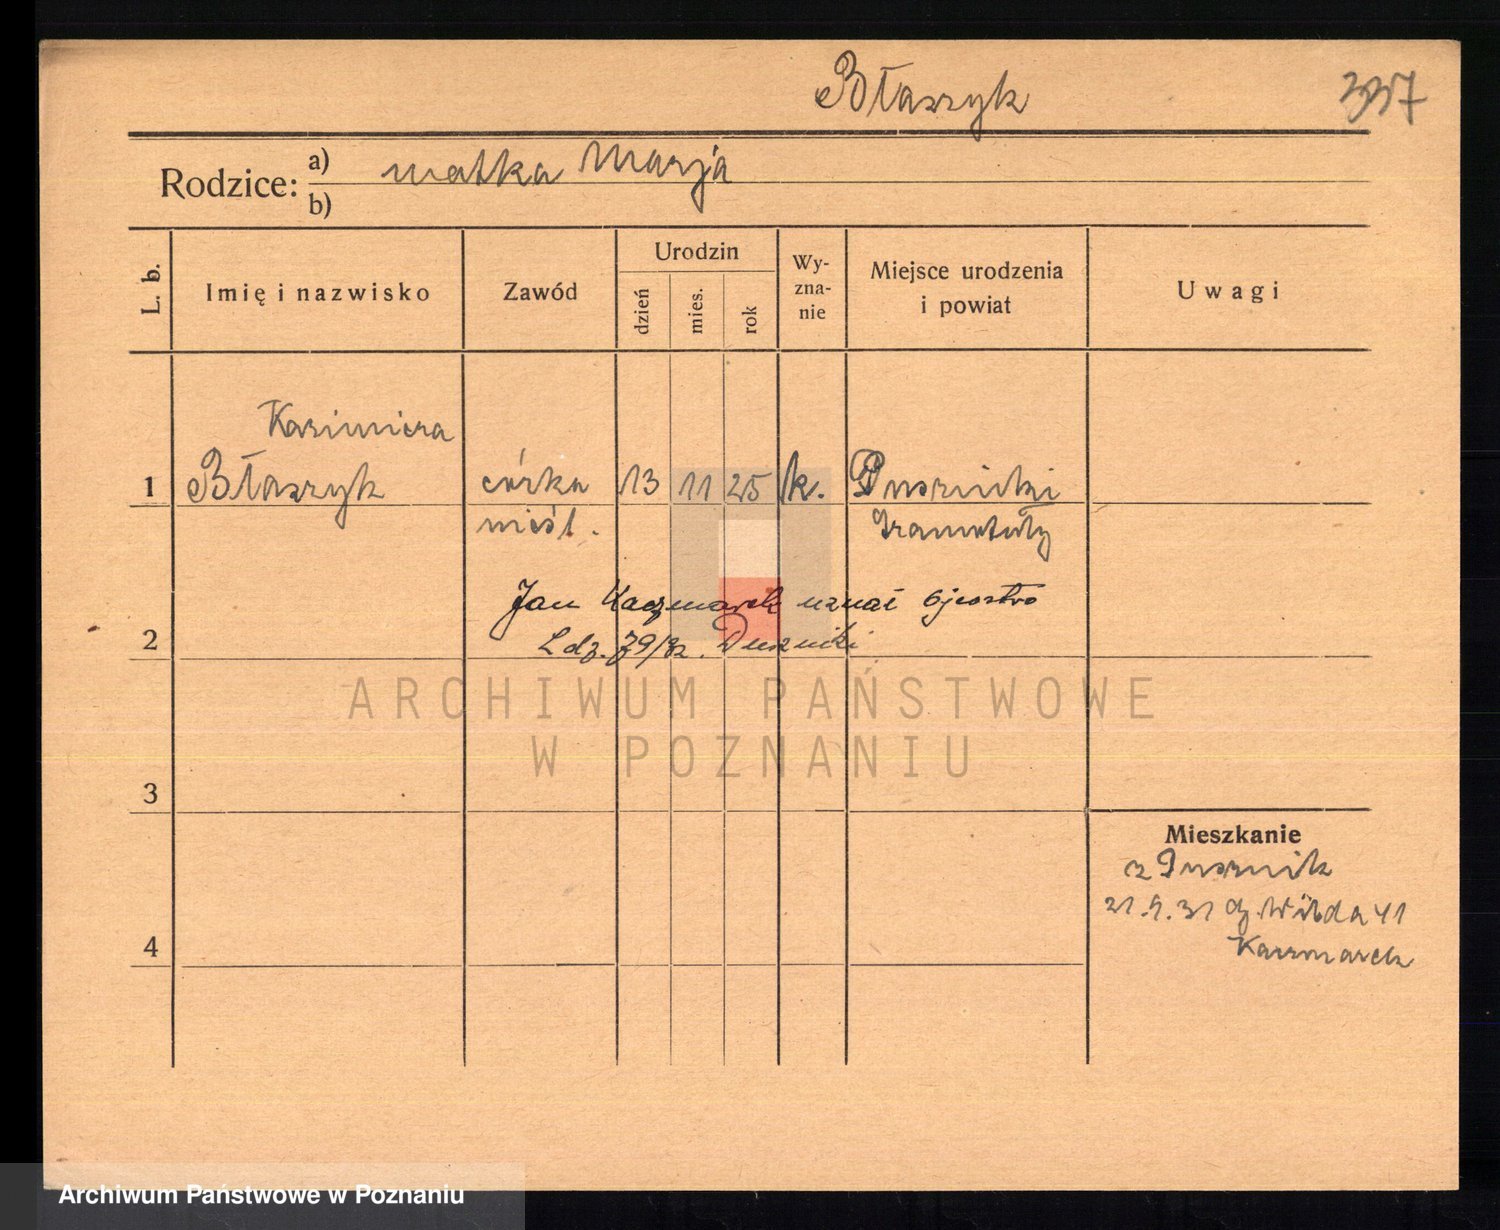 Błaszyk 337
Rodzice: a) matka Marja
b)
L. b. Imię i nazwisko Zawód Urodzin dzień mies. rok Wy-zna-nie Miejsce urodzenia i powiat Uwagi
Kazimiera
1 Błaszyk córka 13 11 25 k. Duszniki
nieśl.
Jan Kaczmarek uznał ojcostwo
2 Ldz. 79/32. Duszniki
ARCHIWUM PAŃSTWOWE
W POZNANIU
3
Mieszkanie
z Dusznik
21.9.31 Wilda 41
4 Kaczmarek
Archiwum Państwowe w Poznaniu